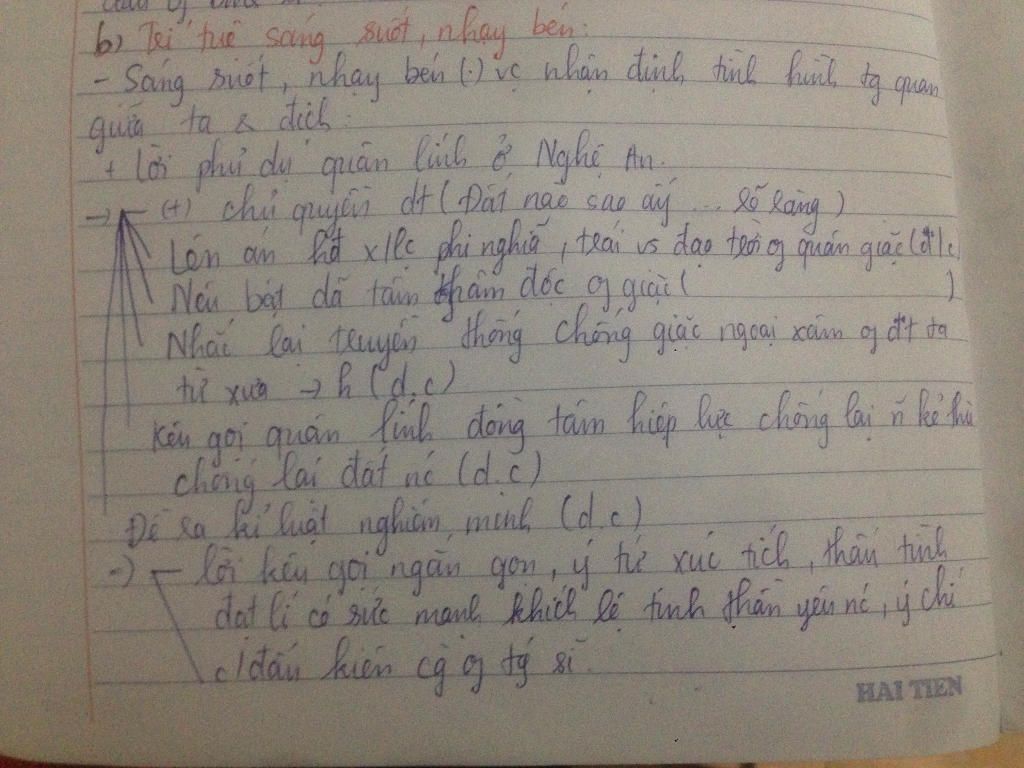 b) Trí tuệ sáng suốt, nhạy bén:
- Sáng suốt, nhạy bén (.) vc nhận định tình hình tg quan
giữa ta & địch:
+ Lời phủ dụ quân lính ở Nghệ An.
→ - (+) chủ quyền dt (Đất nào sao ấy ... lẽ ràng)
Lên án hđ x/lc phi nghĩa, trái vs đạo trời of quân giặc (d/c
Nêu bật dã tâm thâm độc of giặc ( )
Nhắc lại truyền thống chống giặc ngoại xâm of đt ta
từ xưa → h (d.c)
Kêu gọi quân lính đồng tâm hiệp lực chống lại ~ kẻ thù
chống lại đất nc (d.c)
Đề ra kỉ luật nghiêm minh (d.c)
→ - lời kêu gọi ngắn gọn, ý tứ xúc tích, thấu tình
đạt lí có sức mạnh khích lệ tinh thần yêu nc, ý chí
c/đấu kiên cg of tg sĩ.
HAI TIEN